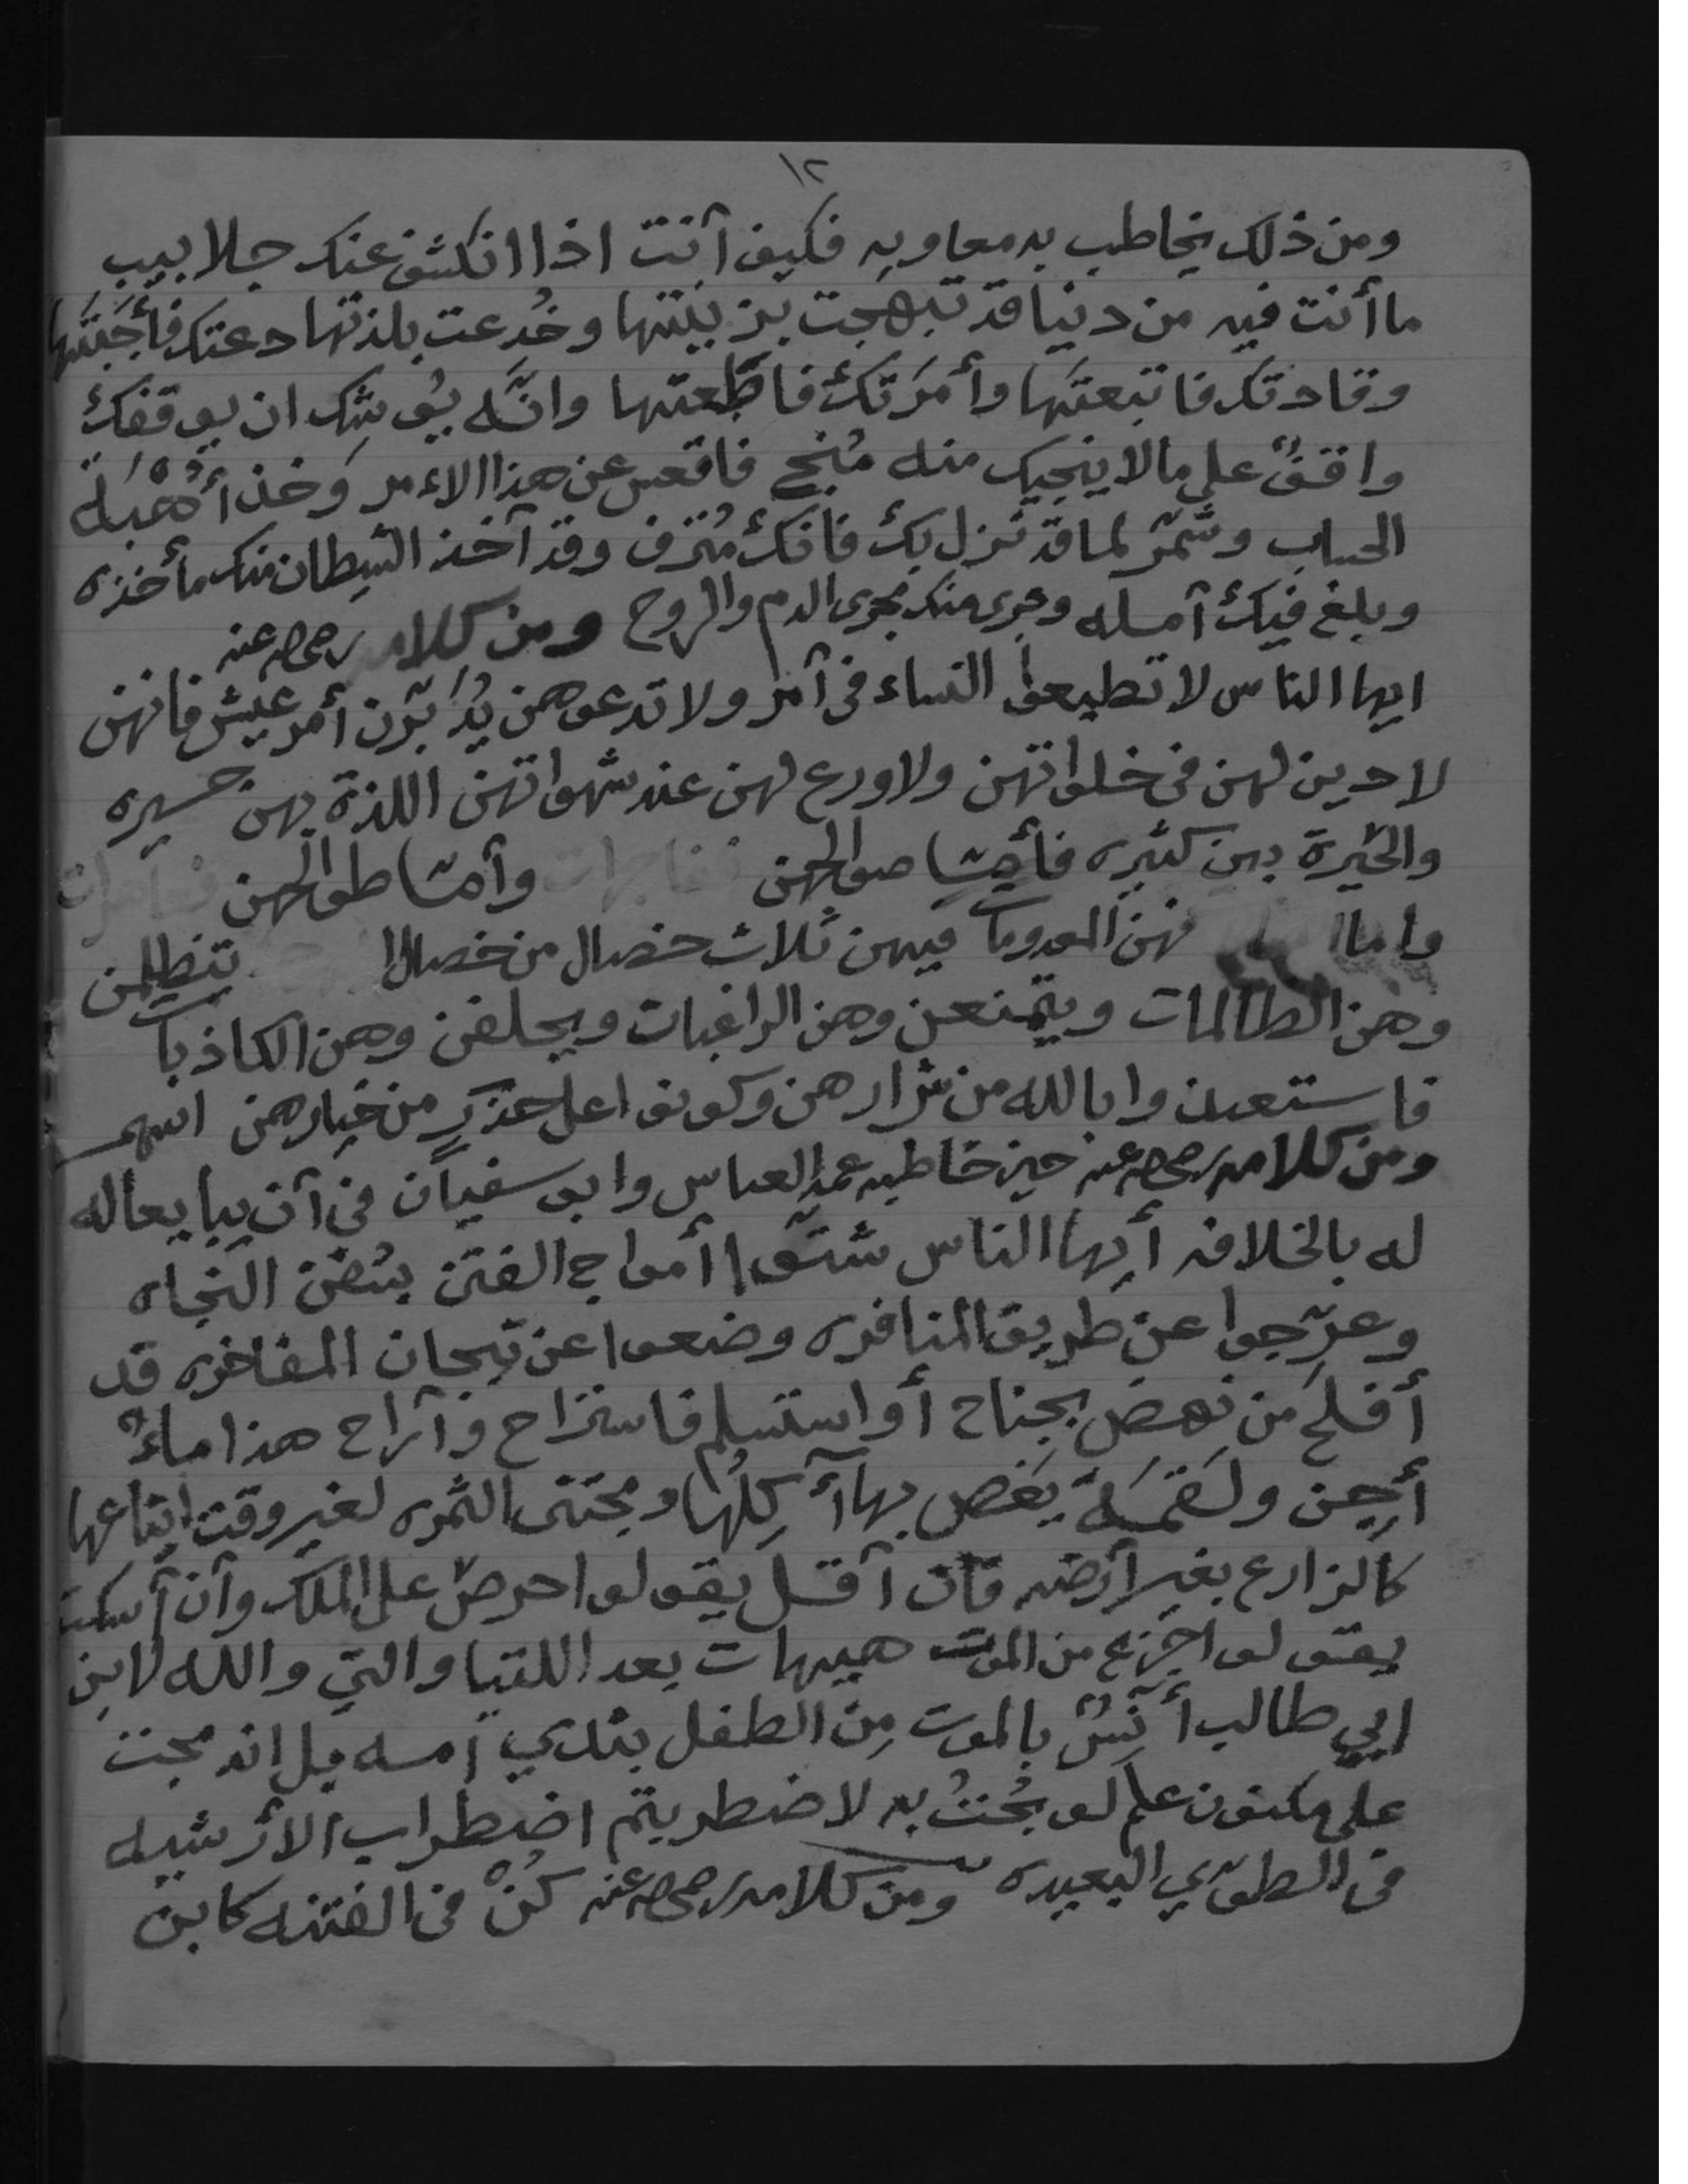 ١٢
ومن ذلك يخاطب به معاويه فكيف أنت اذا انكشف عنك جلابيب
ما أنت فيه من دنيا قد تبهجت بزينتها وخُدعت بلذتها دعتك فأجَبتَها
وقادتك فاتبعتَها وأمَرَتكَ فاطَعتها وانَّه يُوشك ان يوقفك
واقفٌ على مالا ينجيك منه مُنجٍ فاقعس عن هذا الاءمر وَخذ أُهْبَةَ
الحساب وشمّر لما قد نزل بكَ فانكَ مُترف وقد آخذ الشيطان منك مأخذه
وبلغ فيكَ آمله وجرى منك مجرى الدم والروح ومن كلامه رضي الله عنه
ايها الناس لا تطيعوا النساء في آمر ولا تدعوهن يُدَبّرن أمر عيش فانهن
لا دين لهن في خلواتهن ولا ورع لهن عند شهواتهن اللذة بهن يسيره
والحَيرة بهن كثيره فأمّا صوالحهن وأمّا طوالحهن
واما فهن المعدومات فيهن ثلاث خصال من خصال ا يتظلمن
وهن الظالمات ويتمنعن وهن الراغبات ويحلفن وهن الكاذبات
فاستعيذوا بالله من شرارهن وكونوا على حذرٍ من خيارهن
ومن كلامه رضي الله عنه حين خاطبه عمه العباس وابو سفيان في آن يبايعا له
له بالخلافه أيها الناس شقّوا أمواج الفتن بسُفن النجاه
وعرّجوا عن طريق المنافره وضعوا عن تيجان المفاخره قد
أفلحَ من نهض بجناح أو استسلم فاستراح وآراح هذا ماءٌ
أجِن ولَقمَةَ يَغَص بها آكِلُها ومجتنى الثمره لغير وقت ايناعها
كالزارع بغير أرضه فان آقل يقولوا حرصٌ على الملك وآن آسكت
يقولوا جزع من الموت هيهات بعد اللتيا والتي والله لابن
ابي طالب أنسٌ بالموت مِن الطفل بثدي آمه بل اندمجت
على مكنون علم لو بُحْتُ به لاضطربتم اضطراب الأرشيه
في الطوي البعيده ومن كلامه رضي الله عنه كنْ في الفتنه كابن